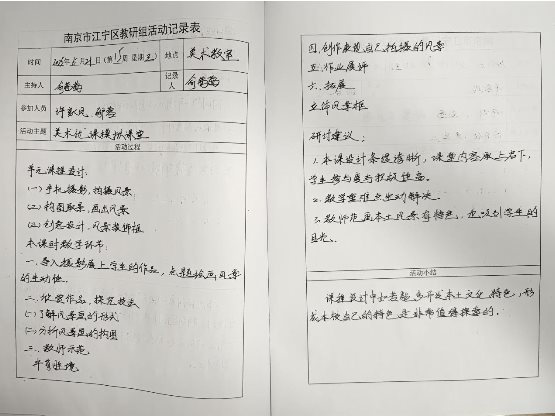 南京市江宁区教研组活动记录表
时间
年5月21日(第15周 星期三)
地点
美术教室
主持人
记录人
参加人员
活动主题
美术优课模拟课堂
活动过程
单元课程设计:
(一)手机摄影,拍摄风景
(二)构图取景,画出风景
(三)创意设计,风景装饰框
本课时教学环节:
一、导入摄影展上学生的作品,点题绘画风景
的生动性。
二、欣赏作品,探究技法
(1)了解风景画的形式
(2)分析风景画的构图
三、教师示范
四、创作表现自己拍摄的风景
五、作业展评
六、拓展
立体风景框
研讨建议:
1.本课设计条理清晰,课堂内容承上启下,
学生参与度与积极性高。
2.教学重难点生动解决。
3.教师范画本土风景有特色,更吸引学生的
目光。
活动小结
课程设计中如若能多开发本土文化特色,形
成本校自己的特色是非常值得探索的。